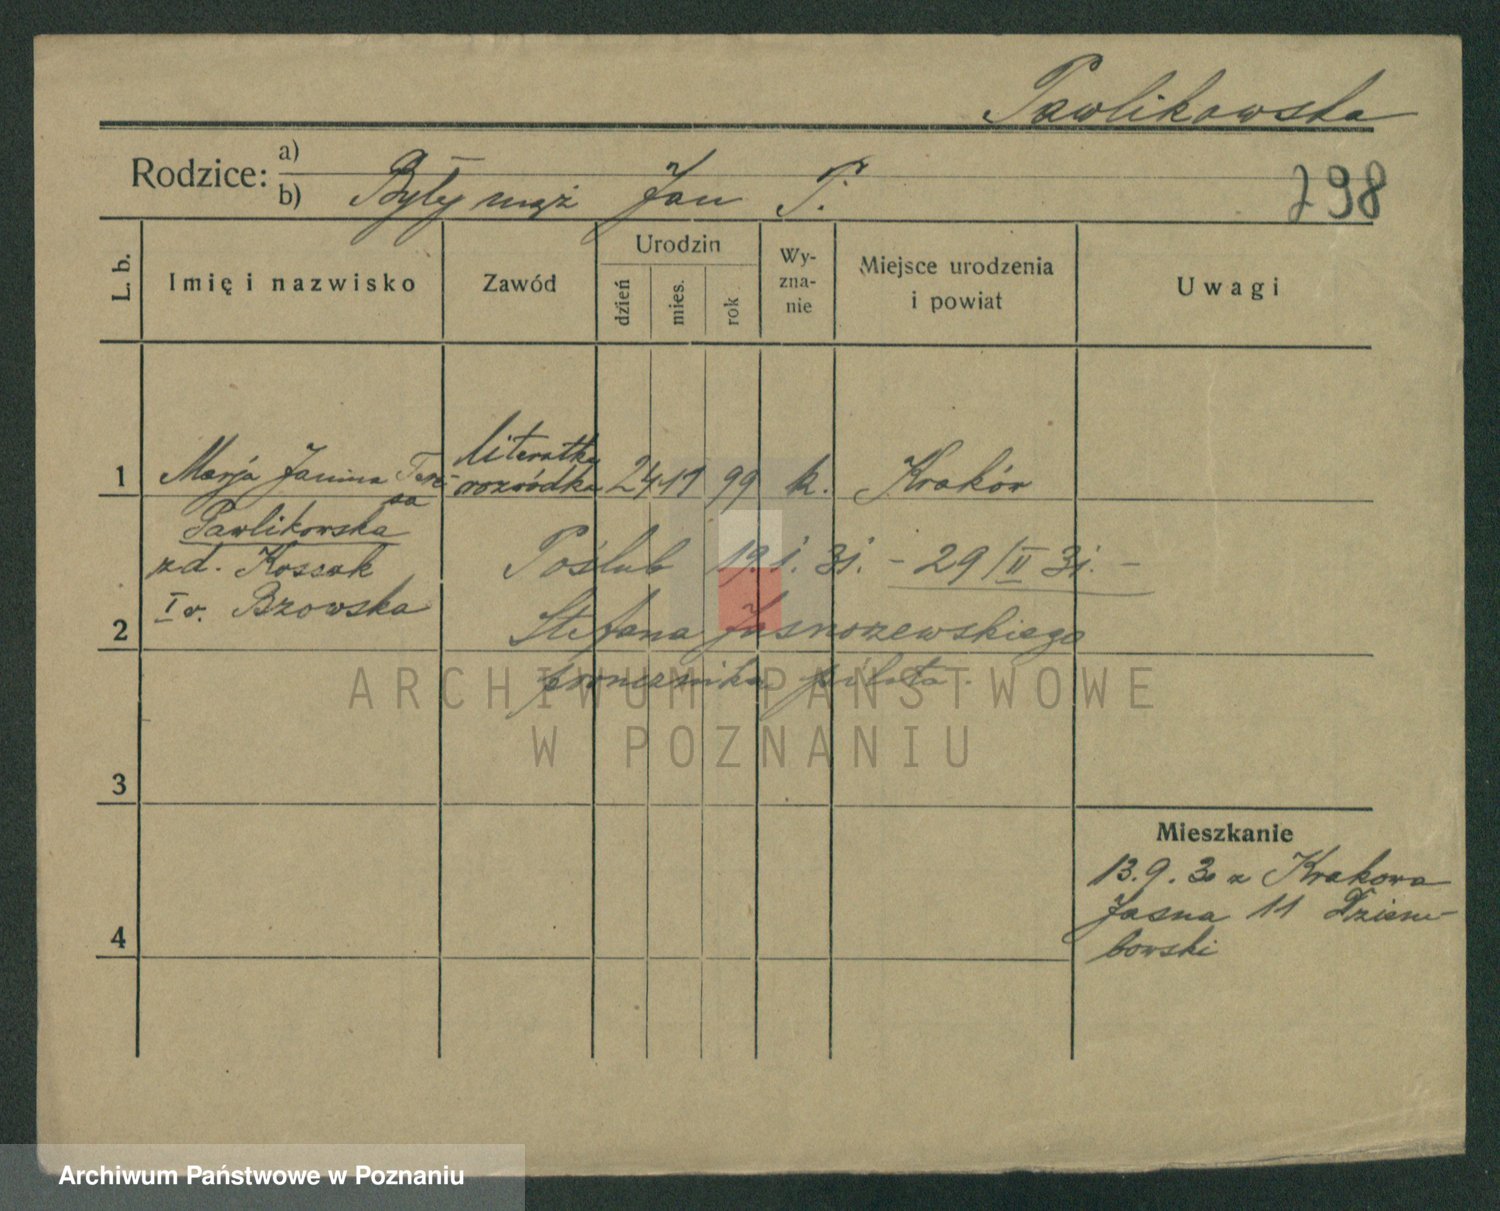 Pawlikowska
Rodzice: a)
b) Były mąż Jan P.
298
L. b.
Imię i nazwisko
Zawód
Urodzin
dzień
mies.
rok
Wy-
zna-
nie
Miejsce urodzenia
i powiat
Uwagi
1 Marja Janina Tere-
sa
literatka
rozwódka
24 11 99 k. Kraków
Pawlikowska
zd. Kossak
I v. Bzowska
Poślub 19. i. 31. - 29/II 31. -
2 Stefana Jasnorzewskiego
porucznika pilota.
ARCHIWUM PAŃSTWOWE
W POZNANIU
3
Mieszkanie
13.9.30 z Krakowa
Jasna 11 Dziem-
bowski
4
Archiwum Państwowe w Poznaniu